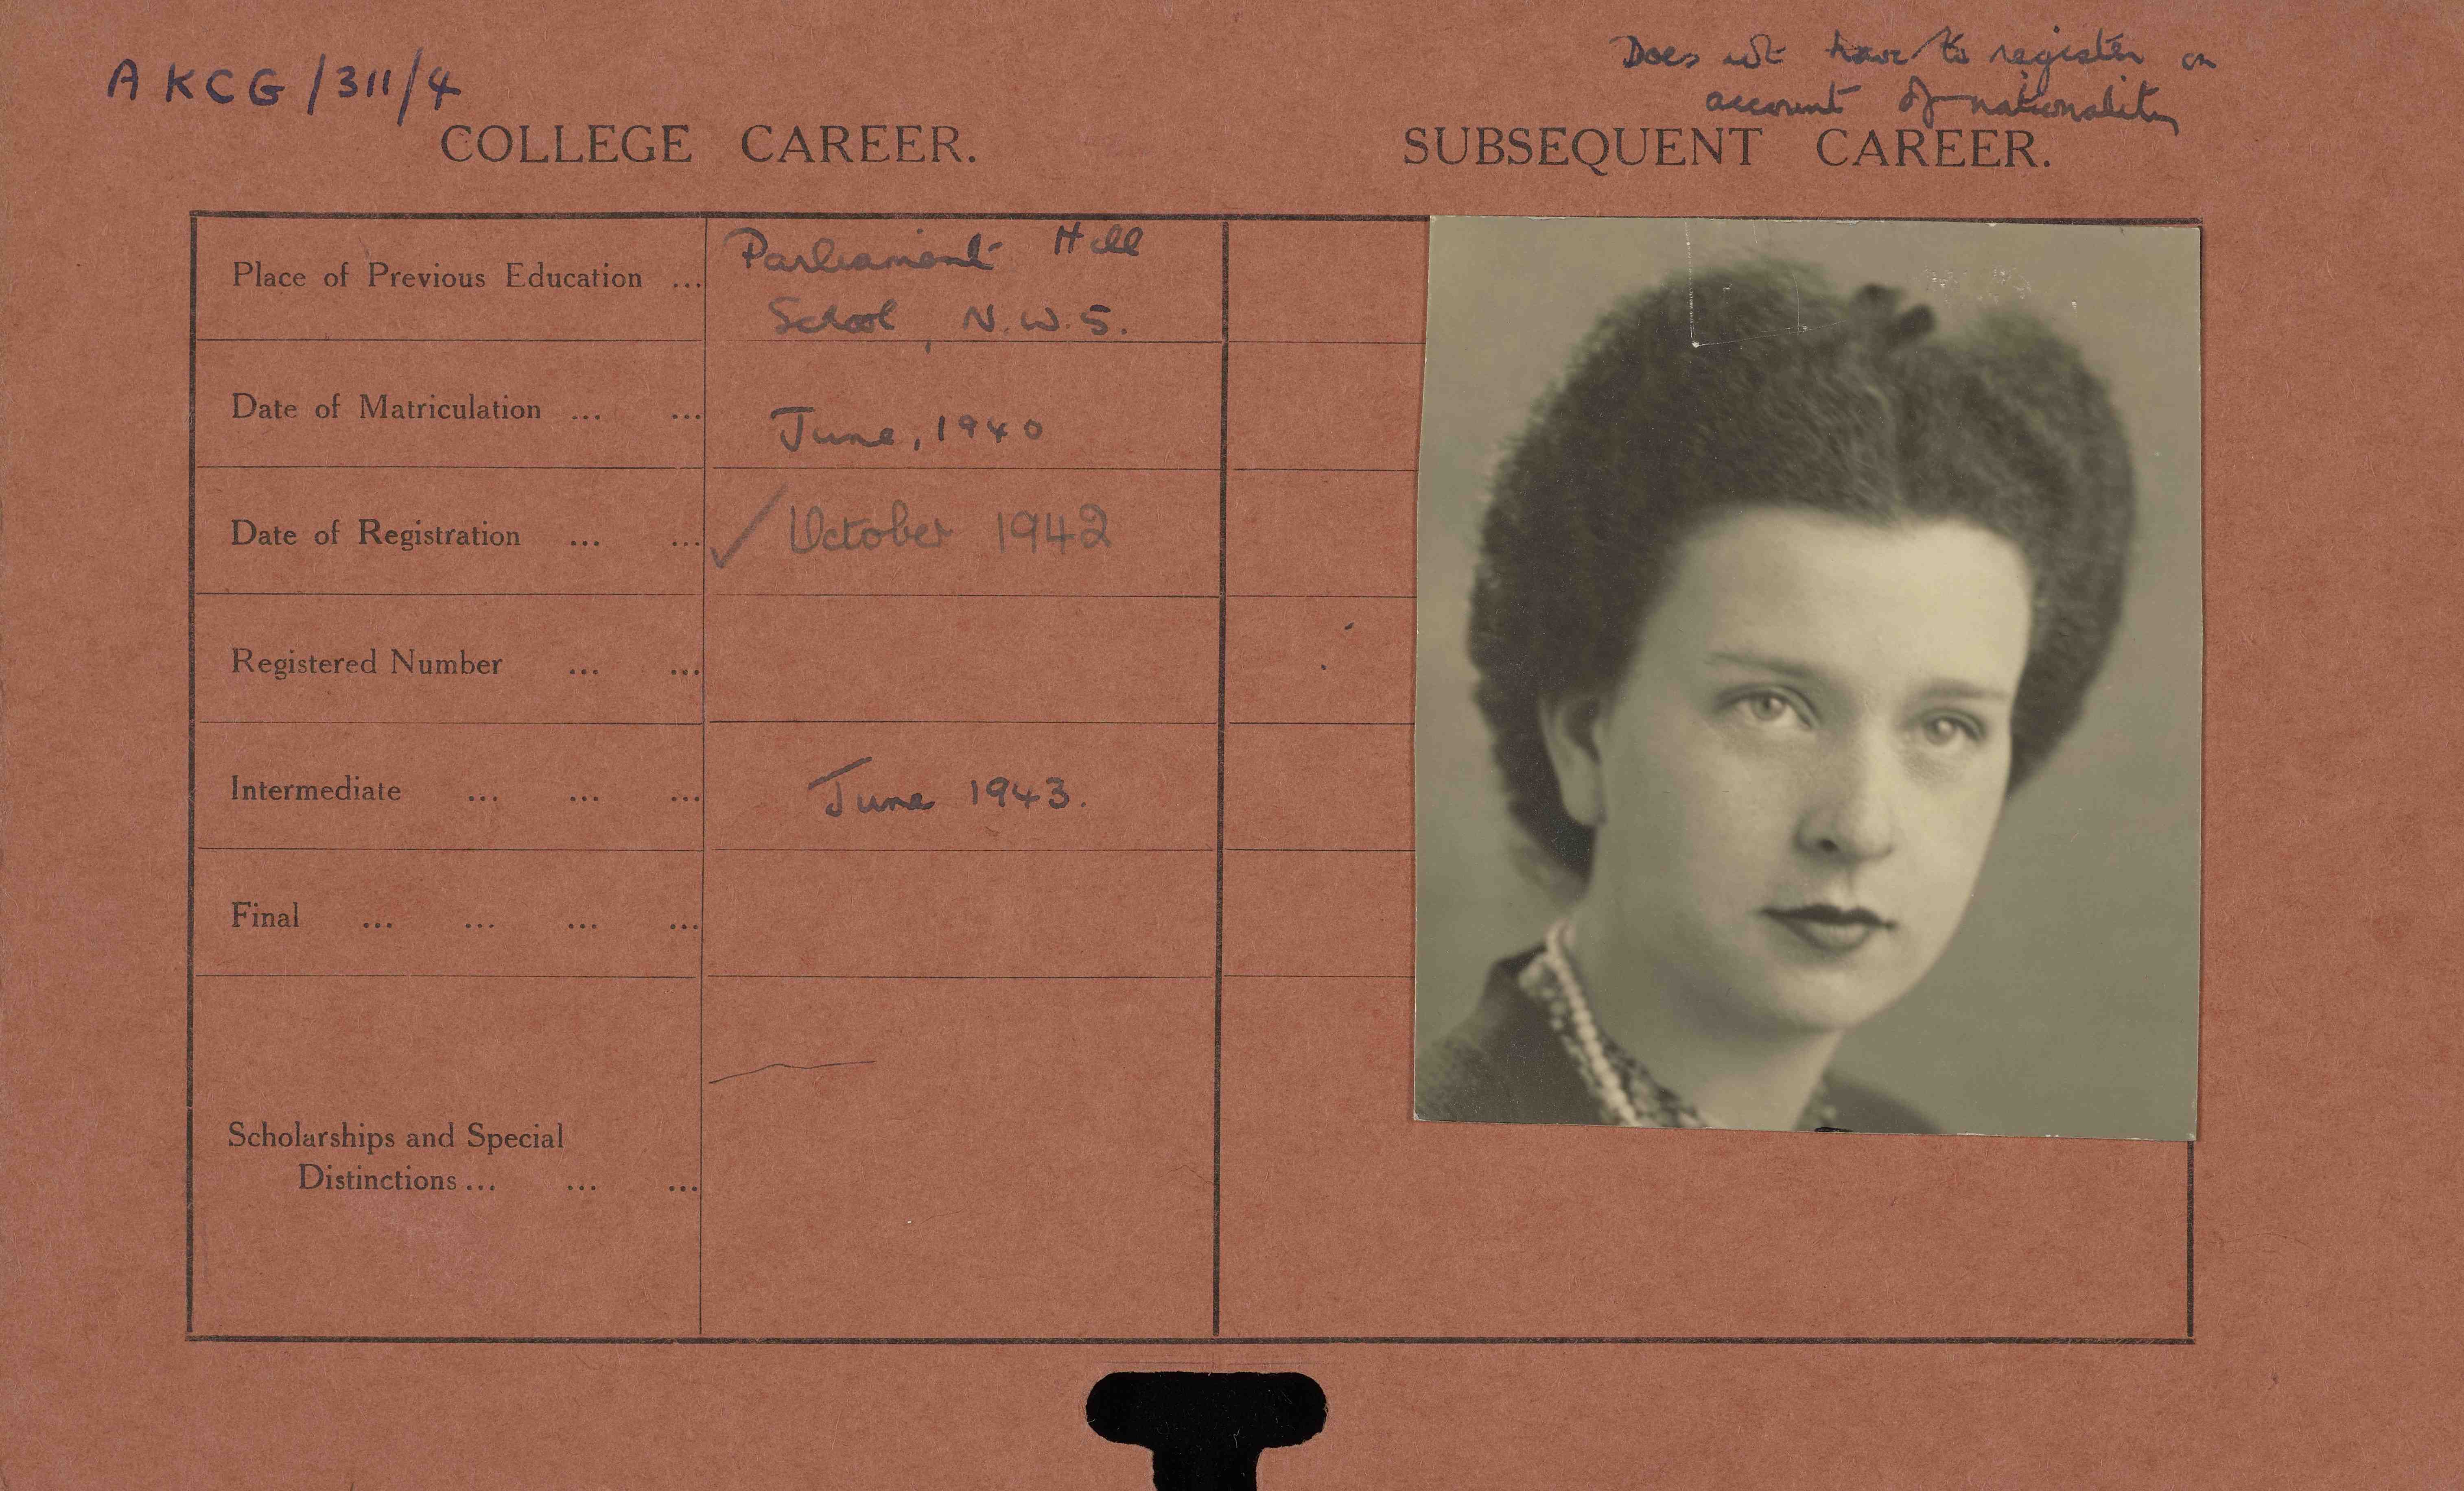 AKCG/311/4
Does not have to register on
account of nationality
COLLEGE CAREER.
SUBSEQUENT CAREER.
Place of Previous Education ... Parliament Hill
School, N.W.5.
Date of Matriculation ... ... June, 1940
Date of Registration ... ... ✓ October 1942
Registered Number ... ...
Intermediate ... ... ... June 1943.
Final ... ... ... ...
Scholarships and Special
Distinctions ... ... ...